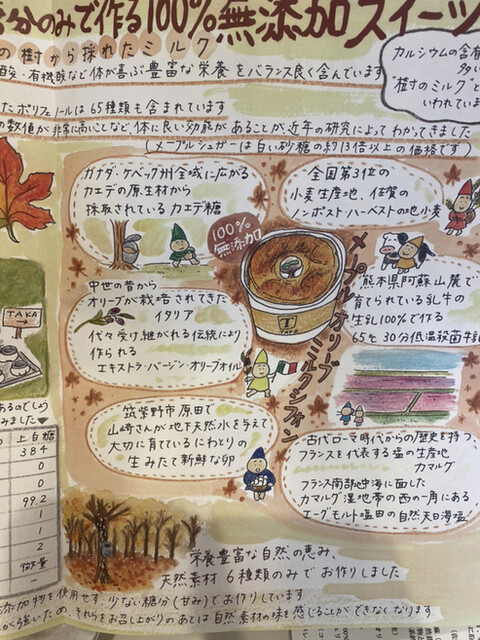 分のみで作る100%無添加スイーツ
の樹から採れたミルク
・有機酸など体が喜ぶ豊富な栄養をバランス良く含んでいます
カルシウムの含有
多い
"樹のミルク"と
いわれていま
たポリフェノールは65種類も含まれています
の数値が非常に高いことなど、体に良い効能があることが近年の研究によってわかってきました
(メープルシュガーは白い砂糖の約13倍以上の価格です)
カナダ・ケベック州全域に広がる
カエデの原生林から
採取されているカエデ糖
全国第3位の
小麦生産地、佐賀の
ノンポスト・ハーベストの地小麦
100%
無添加
メープル・オリーブ
ミルクシフォン
中世の昔から
オリーブが栽培されてきた
イタリア
代々受け継がれる伝統により
作られる
エキストラ・バージン・オリーブオイル
熊本県阿蘇山麓で
育てられている乳牛の
生乳100%で作る
65℃30分低温殺菌牛乳
TAKA
筑紫野市原田で
山崎さんが地下天然水を与えて
大切に育てているにわとりの
生みたて新鮮な卵
古代ローマ時代からの歴史を持つ、
フランスを代表する塩の生産地
カマルグ
フランス南部地中海に面した
カマルグ湿地帯の西の一角にある
エーグモルト塩田の天然天日海塩!
あるのでしょう
みました
上白糖
384
0
0
99.2
1
1
2
微量
-
栄養豊富な自然の恵み、
天然素材6種類のみでお作りしました
添加物を使用せず、少ない糖分(甘み)でお作りしています
が強いため、それらをお召し上がりのあとは自然素材の味を感じることができなくなります